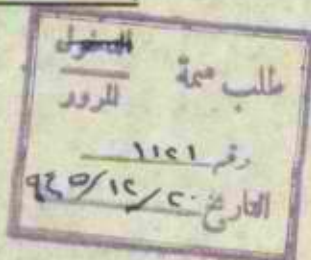 طلب سمة
الدخول
للمرور
رقم ١١٢١
التاريخ ٢٠/١٢/٩٤٥